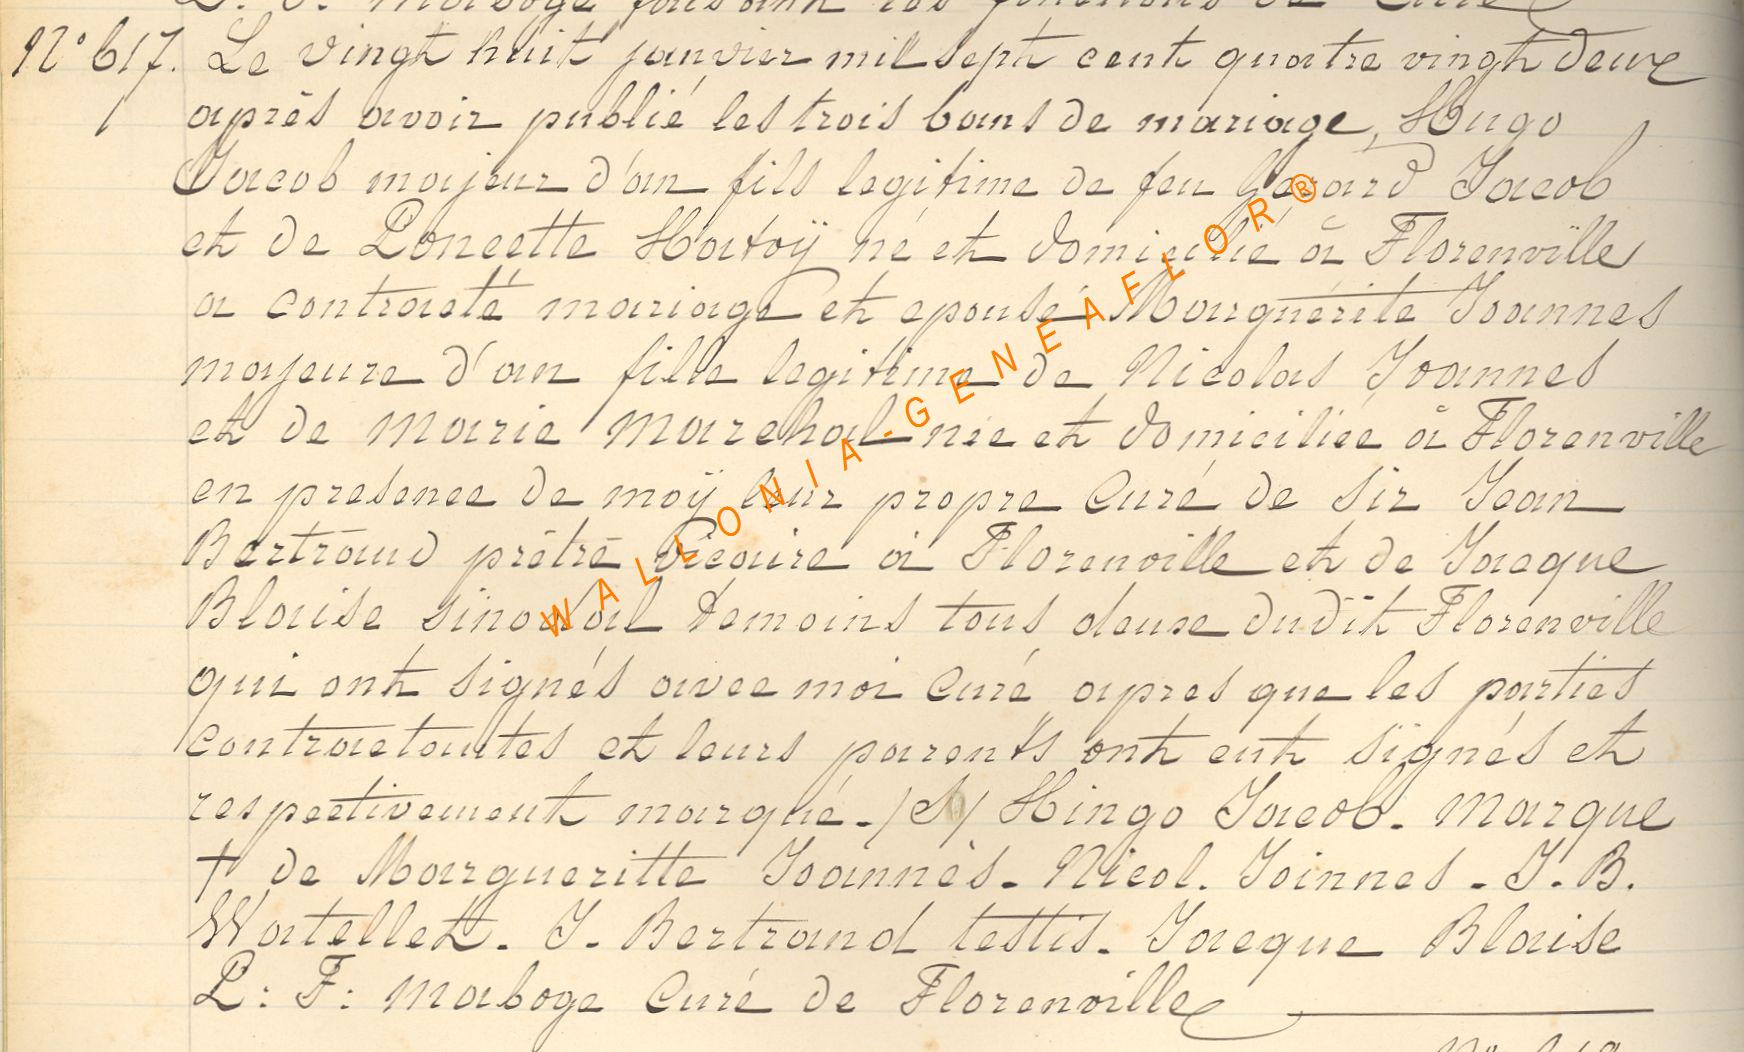 L. F. Maboge faisant les fonctions de Curé
N° 617. Le vingt huit janvier mil sept cent quatre vingt deux
après avoir publié les trois bans de mariage, Hugo
Jacob majeur d'an fils legitime de feu Gerard Jacob
et de Poncette Hatoÿ né et domicilié à Florenvïlle
a contracté mariage et epousé Marguérite Joannes
majeure d'an fille legitime de Nicolas Joannes
et de Marie Marchal née et domiciliée à Florenville
en presence de moÿ leur propre Curé de Sir Jean
Bertrand prêtre vicaire à Florenville et de Jacque
Blaise sinodal temoins tous deux dudit Florenville
qui ont signés avec moi Curé apres que les parties
contractantes et leurs parents ont eut sïgnés et
respectivement marqué. /S/ Hingo Jacob. Marque
† de Margueritte Joannès. Nicol. Joinnes. J. B.
Watellet. J. Bertrand testis. Jacque Blaise
L: F: Maboge Curé de Florenville
WALLONIA-GENEAFLOR®